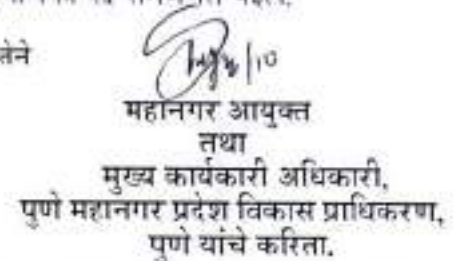 महानगर आयुक्त
तथा
मुख्य कार्यकारी अधिकारी,
पुणे महानगर प्रदेश विकास प्राधिकरण,
पुणे यांचे करिता.